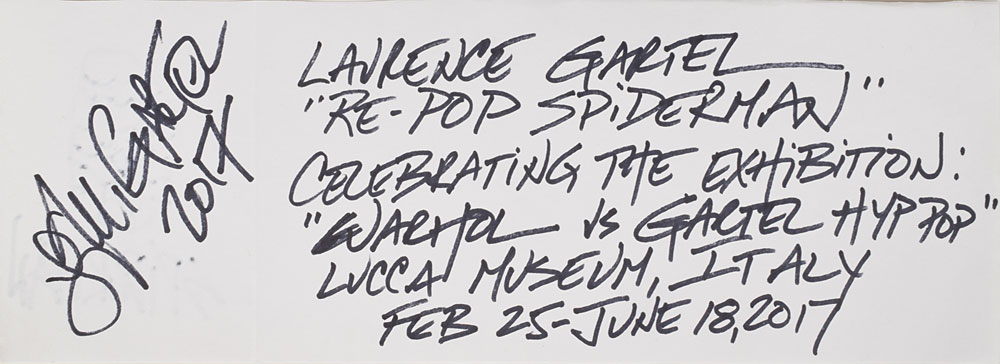 LAURENCE GARTEL
"RE-POP SPiDERMAN"
CELEBRATiNG THE EXHiBiTiON:
"WARHOL vs GARTEL HYP POP"
LUCCA MUSEUM, ITALY
FEB 25-JUNE 18,2017
GARTEL
2017